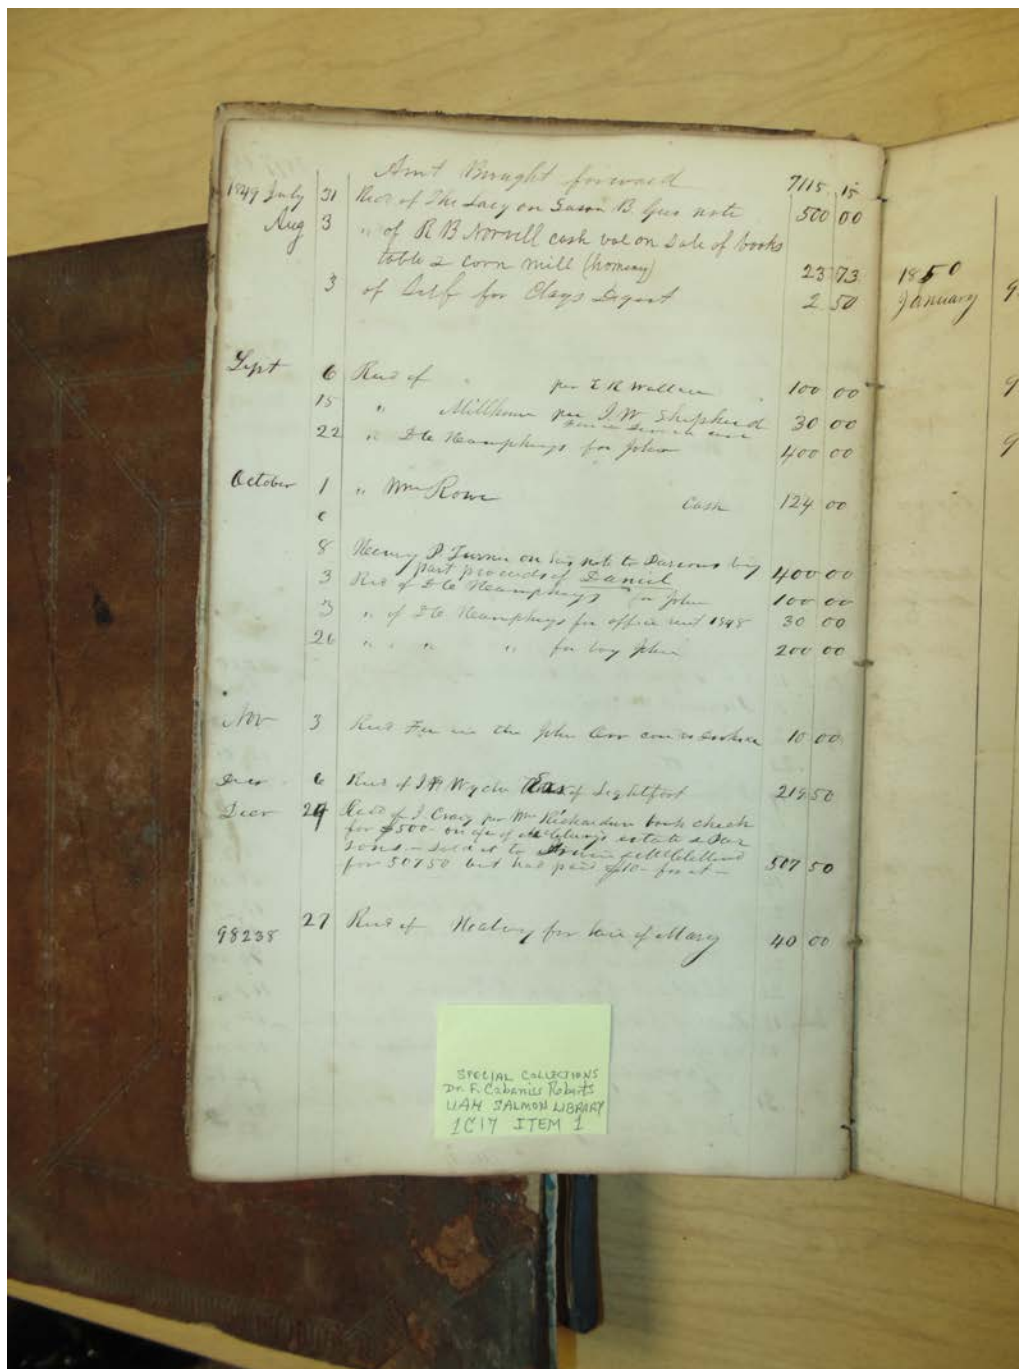 Amt Brought forward 7115 15
1849 July 31 Recd of Lacy on Susan B. note 500 00
Aug 3 " of R B Norvell cash bal on Sale of books
table & corn mill (homeny) 23 73
3 of Self for Clays Digest 2 50
Sept 6 Recd of " per E R Wallace 100 00
15 " Millhouse per J. W. Shepherd 30 00
22 " D C Humphreys for John 400 00
October 1 " Wm Rowe Cash 124 00
8 Henry P. Turner on his note to Parsons by
part proceeds of Daniel 400 00
3 Recd of D C Humphreys for John 100 00
3 " of D C Humphreys for office rent 1848 30 00
26 " " " " for boy John 200 00
Nov 3 Recd Fee in the John Orr case vs 10 00
Decr 6 Recd of Wyche Exr of Lightfoot 219 50
Decr 24 Recd of J. Craig per Wm Richardson bank check
for $500 on a/c of estate & Par
sons – sold it to
for 507 50 but had paid $10 for it – 507 50
98238 27 Recd of for hire of Mary 40 00
1850
January
9
9
9
SPECIAL COLLECTIONS
Dr. F. Cabaniss Roberts
UAH SALMON LIBRARY
1C17 ITEM 1